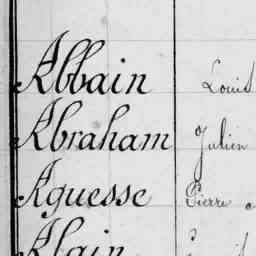 Abbain Louis
Abraham Julien
Aguesse Pierre
Alain